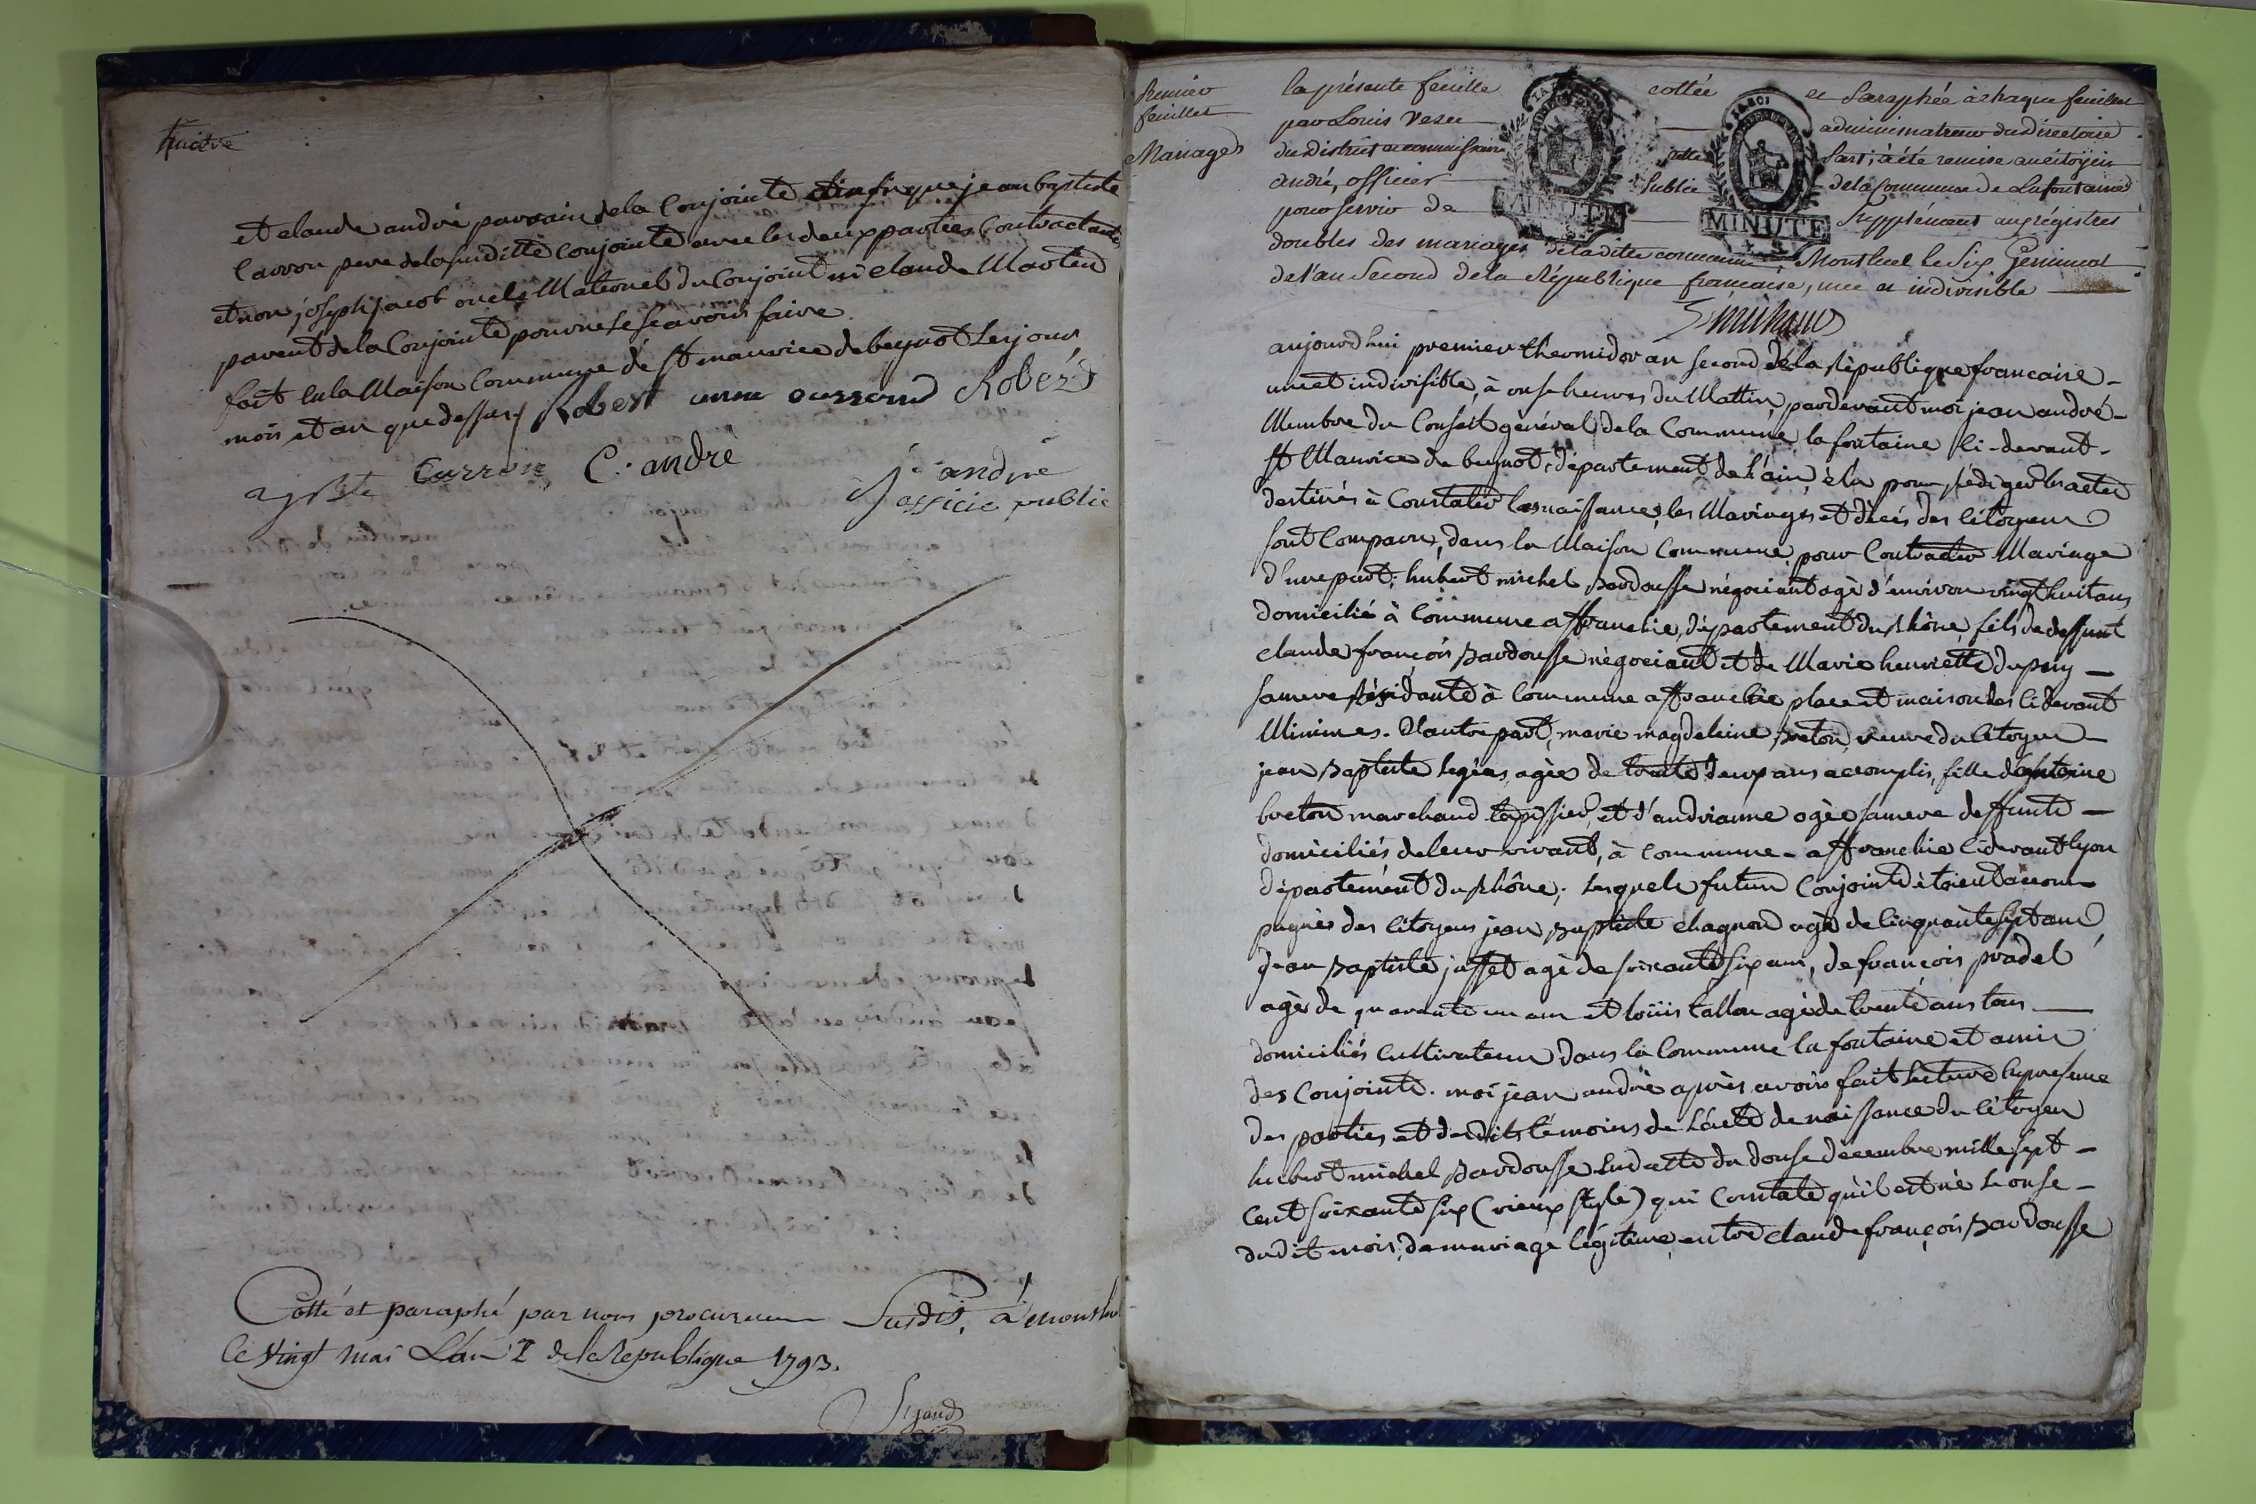 huitre
et claude andré parrain de la Conjointe ainsi que jean baptiste
Carron pere de la suditte Conjointe avec les deux parties Contractants
et non joseph jacob oncle Maternel du Conjoint ni claude Marten
parent de la Conjointe pour ne le scavoir faire
fait en la Maison Commune de St maurice de beynost les jour
mois et an que dessus Robert anne Carrond Robert
Bte Carron C. andré
J. andré
officie public
Cotté et paraphé par nous procureur Susdit, à montluel
le vingt mai L'an 2 de la Republique 1793.
Premier
feuillet
Mariages
la présente feuille cottée et Paraphée à chaque feuillet
par Louis administrateur du Directoire
du District commissaire cette part, à été remise au citoyen
andré, officier Public de la Commune de Lafontaine
pour servir de Supplément au régistres
doubles des mariages de la dite commune Montluel le Six Germinal
de l'an Second de la République francaise, une et indivisible
aujourdhui premier thermidor an second de la République francaise
une et indivisible, à onse heures du Mattin, pardevant moi jean andré
Membre du Conseil général de la Commune la fontaine ci-devant
St Maurice de beynost, département de l'ain, élu pour rédiger les actes
destinés à Constater les naissances, les Mariages et décès des citoyens
sont Comparu, dans la Maison Commune pour Contracter Mariage
d'une part; hubert michel Bardousse négociant agé d'environ vingt huit ans
domicilié à Commune affranchie, département du Rhône, fils de deffunt
claude françois Bardousse négociant et de Marie henriette dupuy
sa mere résidante à Commune affranchie place et maison des cidevant
Minimes. D'autre part, marie magdeleine breton, veuve du citoyen
jean Baptiste legras, agée de trente deux ans accomplis, fille d'antoine
breton marchand tapissier, et d'andrianne ogée sa mere deffunte
domiciliés de leur vivant, à commune-affranchie cidevant lyon
département du Rhône; Lesquels futurs Conjoints étoient accom-
pagnés des citoyens jean Baptiste chagnon agé de cinquante sept ans
jean Baptiste jusset agé de soixante six ans, de françois pradel
agé de quarante un ans et loüis tallon agé de trente ans tous
domiciliés cultivateurs dans la Commune la fontaine et amis
des Conjoints. moi jean andré après avoir fait lecture en présence
des parties et desdits témoins de l'acte de naissance du citoyen
hubert michel Bardousse en datte du douse decembre mille sept
cent soixante six (vieux style) qui Constate qu'il est né le onse
dudit mois, du mariage légitime, entre claude françois Bardousse